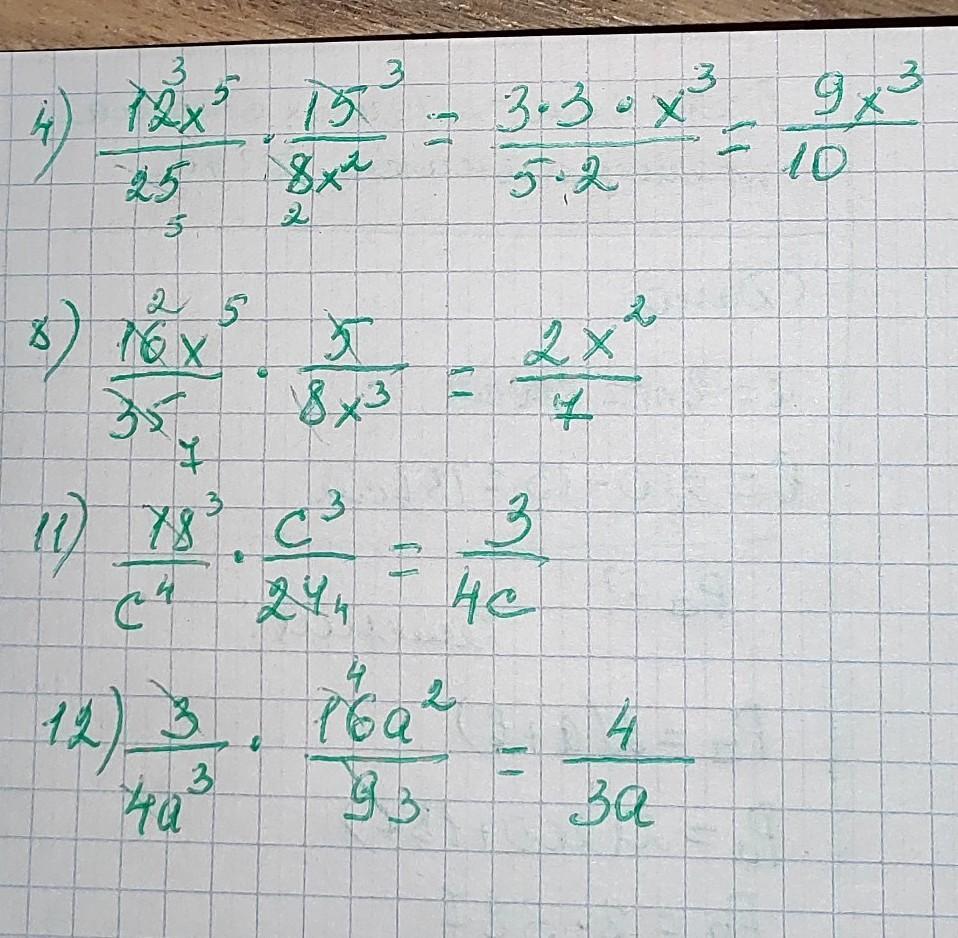 4) 12x⁵/25 · 15/8x² = 3·3·x³/5·2 = 9x³/10
8) 16x⁵/35 · 5/8x³ = 2x²/7
11) 18/c⁴ · c³/24 = 3/4c
12) 3/4a³ · 16a²/9 = 4/3a